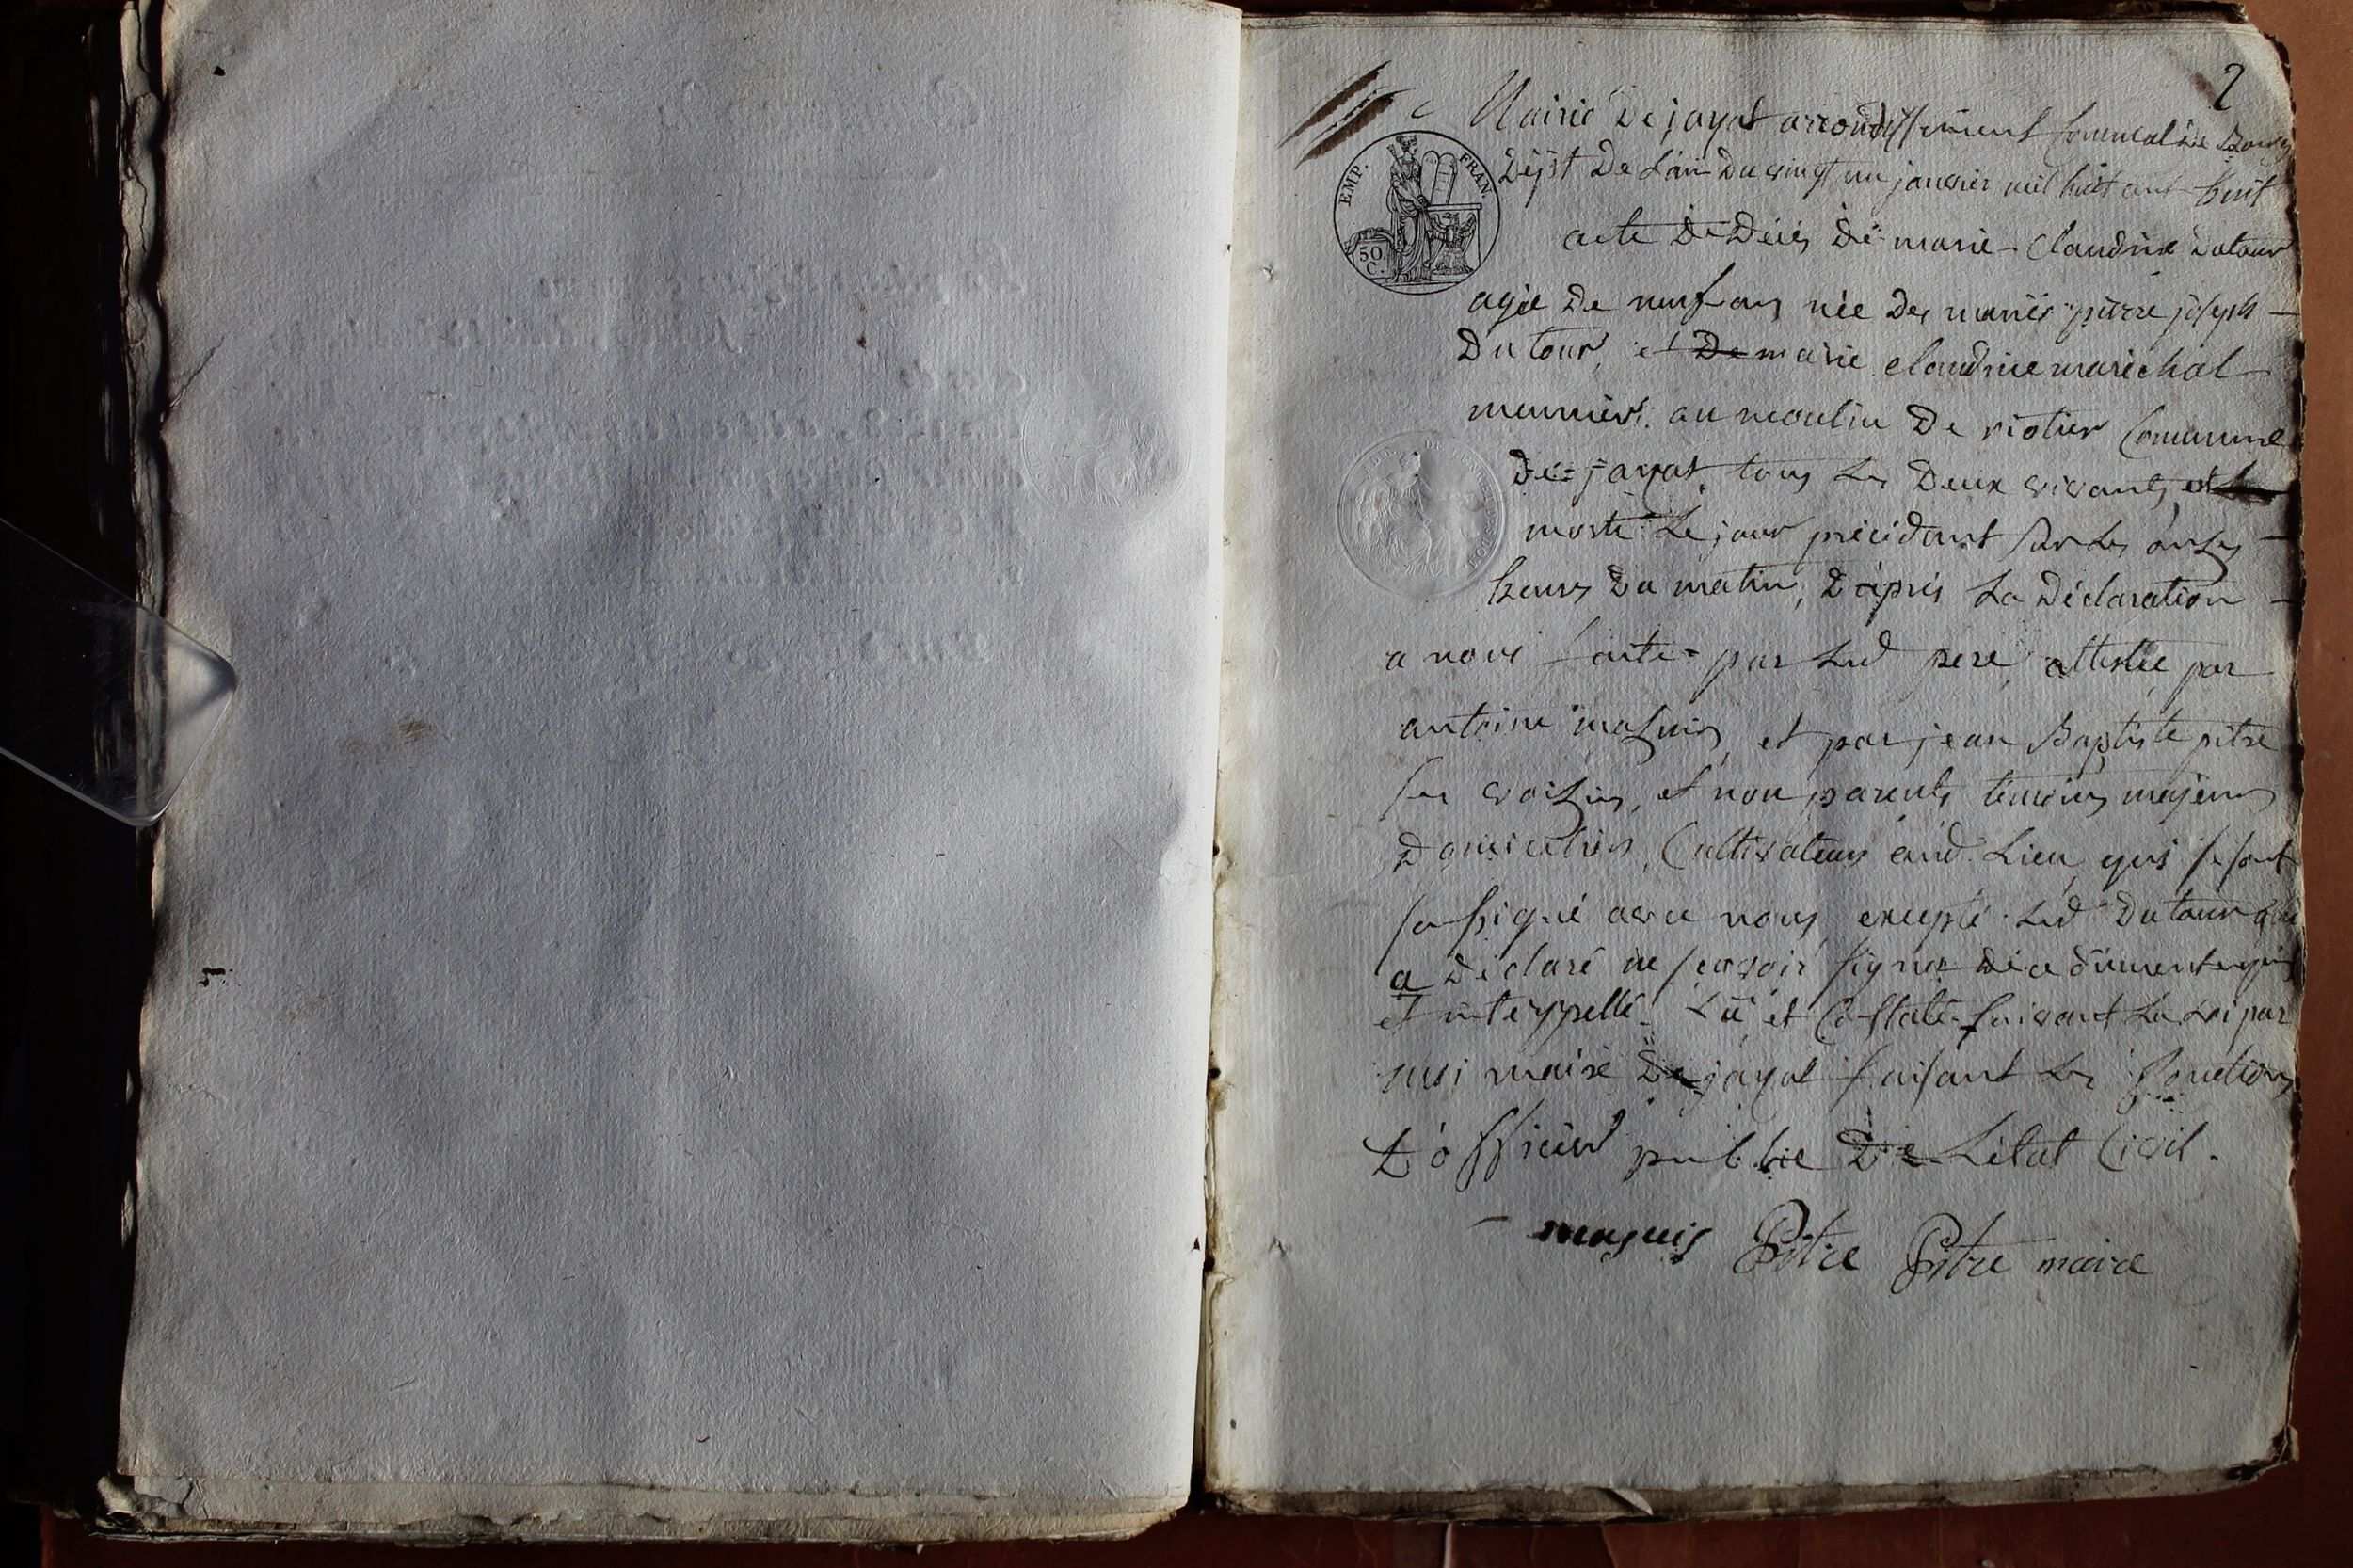 2
Mairie De jayat arrondissement Communal de Bourg
EMP. FRAN.
50. C.
Dept De L'ain Du vingt un janvier mil huit cent huit
acte De Décés De marie Claudine Dutour
agée De neuf ans née Des mariés pierre joseph
Dutour, et De marie claudine maréchal
meunier au moulin De riotier Commune
De jayat, tous Les Deux vivants, est
morte Le jour précédent sur Les onzes
heures Du matin, D'après La Déclaration
a nous faite par Led pere, attestée par
antoine masuis, et par jean Baptiste pitre
ses voisins, et non parents temoins majeurs
Domiciliés, Cultivateurs aud. Lieu, qui se sont
soussigné avec nous excepté Led Dutour qui
a Déclaré ne scavoir signer De ce dument requis
et interppellé. Lü et Constaté suivant La Loi par
moi maire De jayat faisant Les fonctions
D'officier public De L'état Civil.
masuis Pitre Pitre maire